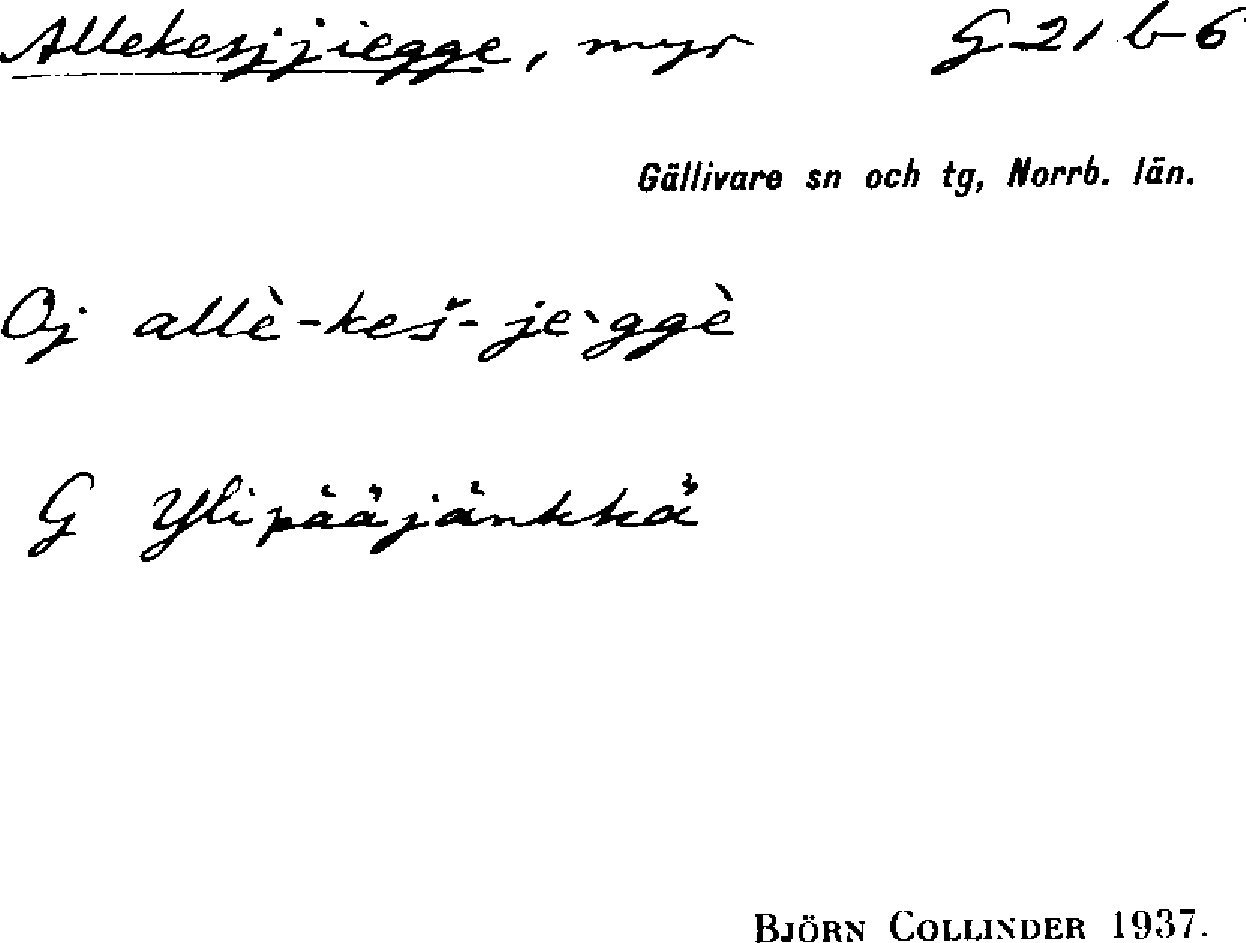 Allekesjjiegge, myr G 21 b-6
Gällivare sn och tg, Norrb. län.
Oj allè-keš-je`ggè
G Ylipääjänkkä
BJÖRN COLLINDER 1937.